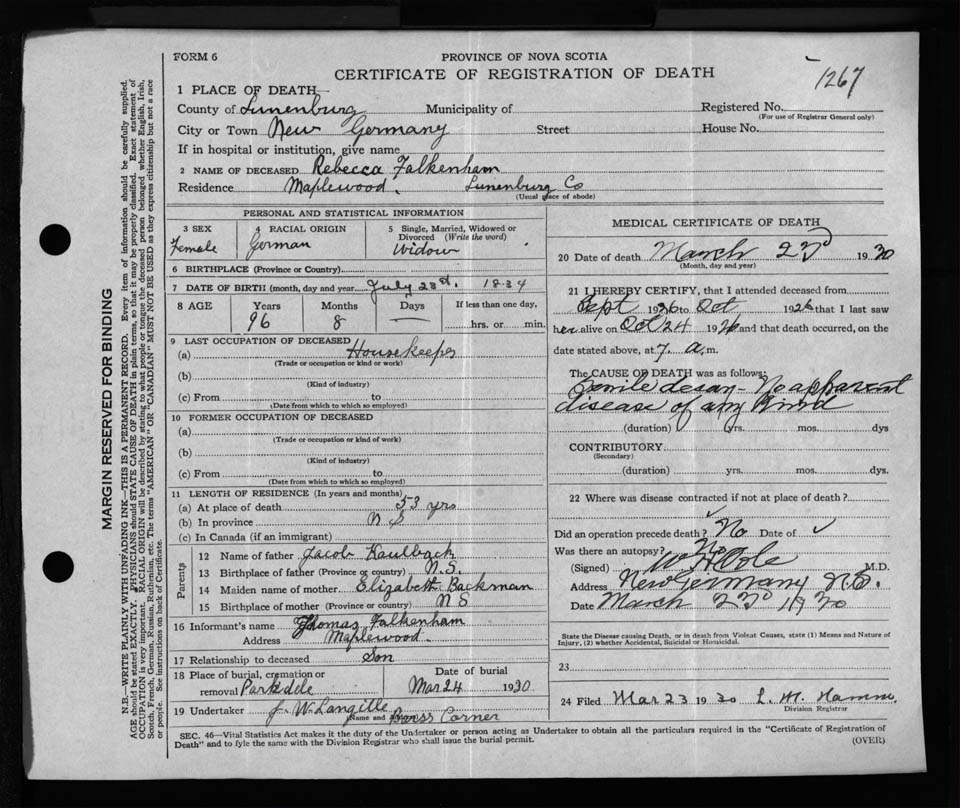 FORM 6
PROVINCE OF NOVA SCOTIA
CERTIFICATE OF REGISTRATION OF DEATH
1267
1 PLACE OF DEATH—
County of Lunenburg Municipality of Registered No.
(For use of Registrar General only)
City or Town New Germany Street House No.
If in hospital or institution, give name
2 NAME OF DECEASED Rebecca Falkenham
Residence Maplewood. Lunenburg Co
(Usual place of abode)
PERSONAL AND STATISTICAL INFORMATION
3 SEX
Female
4 RACIAL ORIGIN
German
5 Single, Married, Widowed or
Divorced (Write the word)
Widow
6 BIRTHPLACE (Province or Country)
7 DATE OF BIRTH (month, day and year) July 23rd. 1834
8 AGE Years Months Days If less than one day,
96 8 — hrs. or min.
9 LAST OCCUPATION OF DECEASED
(a) Housekeeper
(Trade or occupation or kind or work)
(b)
(Kind of industry)
(c) From to
(Date from which to which so employed)
10 FORMER OCCUPATION OF DECEASED
(a)
(Trade or occupation or kind of work)
(b)
(Kind of industry)
(c) From to
(Date from which to which so employed)
11 LENGTH OF RESIDENCE (In years and months)
(a) At place of death 53 yrs
(b) In province N S
(c) In Canada (if an immigrant)
Parents
12 Name of father Jacob Kaulback
13 Birthplace of father (Province or country) N.S.
14 Maiden name of mother Elizabeth Backman
15 Birthplace of mother (Province or country) N S
16 Informant's name Thomas Falkenham
Address Maplewood.
17 Relationship to deceased Son
18 Place of burial, cremation or
removal Parkdale
Date of burial
Mar 24 1930
19 Undertaker J. W. Langille
Name and Address Barss Corner
MEDICAL CERTIFICATE OF DEATH
20 Date of death March 23rd 1930
(Month, day and year)
21 I HEREBY CERTIFY, that I attended deceased from
Sept 1926 to Oct 1926 that I last saw
her alive on Oct 24 1926 and that death occurred, on the
date stated above, at 7. a.m.
The CAUSE OF DEATH was as follows:
Senile decay - No apparent
disease of any kind
(duration) yrs. mos. dys
CONTRIBUTORY
(Secondary)
(duration) yrs. mos. dys.
22 Where was disease contracted if not at place of death?
Did an operation precede death? No Date of
Was there an autopsy? No
(Signed) W. H. Cole M.D.
Address New Germany N.S.
Date March 23rd 1930
State the Disease causing Death, or in death from Violent Causes, state (1) Means and Nature of
Injury, (2) whether Accidental, Suicidal or Homicidal.
23
24 Filed Mar 23 1930 L. M. Hamm
Division Registrar
SEC. 46—Vital Statistics Act makes it the duty of the Undertaker or person acting as Undertaker to obtain all the particulars required in the "Certificate of Registration of
Death" and to fyle the same with the Division Registrar who shall issue the burial permit.
(OVER)
MARGIN RESERVED FOR BINDING
N.B.—WRITE PLAINLY WITH UNFADING INK—THIS IS A PERMANENT RECORD. Every item of information should be carefully supplied.
AGE should be stated EXACTLY. PHYSICIANS should STATE CAUSE OF DEATH in plain terms, so that it may be properly classified. Exact statement of
OCCUPATION is very important. RACIAL ORIGIN will be described by stating to what people or tongue the deceased person belonged whether English, Irish,
Scotch, French, German, Russian, Ruthenian, etc. The terms "AMERICAN" or "CANADIAN" MUST NOT BE USED as they express citizenship but not a race
or people. See instructions on back of Certificate.